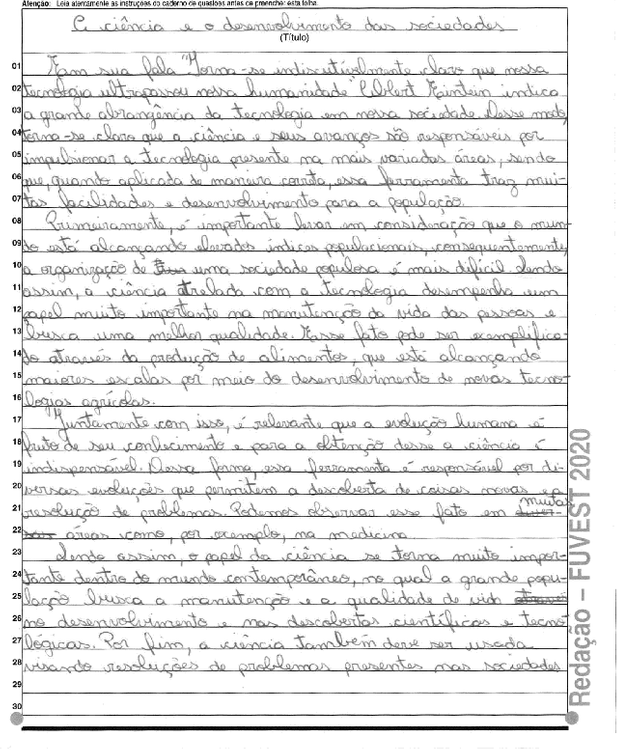 Atenção: Leia atentamente as instruções do caderno de questões antes de preencher esta folha.
A ciência e o desenvolvimento das sociedades
(Título)
01 Em sua fala "Torna-se indiscutivelmente claro que nossa
02 tecnologia ultrapassou nossa humanidade" Albert Einstein indica
03 a grande abrangência da tecnologia em nossa sociedade. Desse modo,
04 torna-se claro que a ciência e seus avanços são responsáveis por
05 impulsionar a tecnologia presente na mais variadas áreas, sendo
06 que, quando aplicada de maneira correta, essa ferramenta traz mui-
07 tas facilidades e desenvolvimento para a população.
08 Primeiramente, é importante levar em consideração que o mun-
09 do está alcançando elevados índices populacionais, consequentemente,
10 a organização de uma sociedade populosa é mais difícil. Sendo
11 assim, a ciência atrelada com a tecnologia desempenha um
12 papel muito importante na manutenção da vida das pessoas e
13 busca uma melhor qualidade. Esse fato pode ser exemplifica-
14 do através da produção de alimentos, que está alcançando
15 maiores escalas por meio do desenvolvimento de novas tecno-
16 logias agrícolas.
17 Juntamente com isso, é relevante que a evolução humana é
18 fruto de seu conhecimento e para a obtenção desse a ciência é
19 indispensável. Dessa forma, essa ferramenta é responsável por di-
20 versas evoluções que permitem a descoberta de coisas novas e a
21 resolução de problemas. Podemos observar esse fato em muitas
22 áreas como, por exemplo, na medicina.
23 Sendo assim, o papel da ciência se torna muito impor-
24 tante dentro do mundo contemporâneo, no qual a grande popu-
25 lação busca a manutenção e a qualidade de vida
26 no desenvolvimento e nas descobertas científicas e tecno-
27 lógicas. Por fim, a ciência também deve ser usada
28 visando resoluções de problemas presentes nas sociedades
29
30
Redação – FUVEST 2020